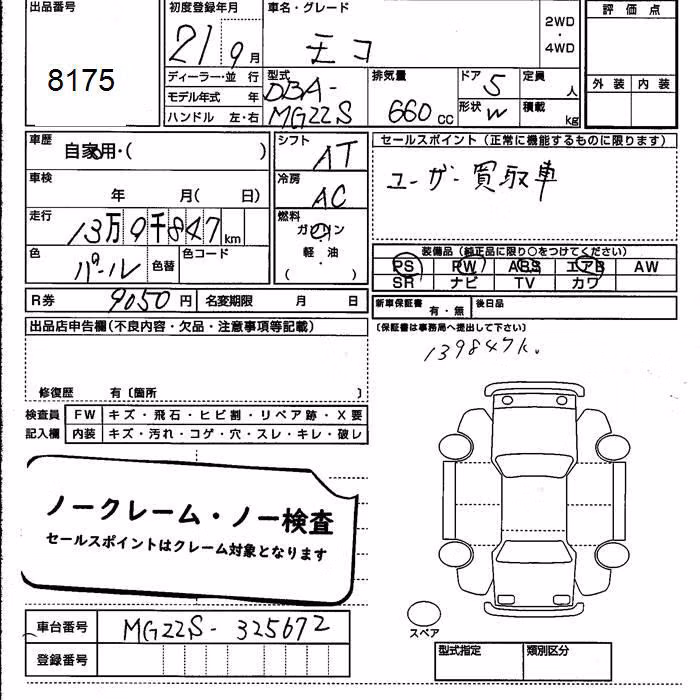 出品番号
8175
初度登録年月
21 9月
車名・グレード
モコ
2WD
・
4WD
評価点
外装 内装
ディーラー・並 行
モデル年式 年
ハンドル 左・右
型式
DBA-
MG22S
排気量
660 cc
ドア 5
形状 W
定員 人
積載 kg
車歴
自家用・( )
車検
年 月( 日)
走行
13万9千847km
色
パール
色替
色コード
シフト
AT
冷房
AC
燃料
ガソリン
軽油
( ・ )
セールスポイント(正常に機能するものに限ります)
ユーザー買取車
装備品(純正品に限り○をつけてください)
PS PW ABS エアB AW
SR ナビ TV カワ
R券 9050円 名変期限 月 日
新車保証書 有・無 後日品
(保証書は事務局へ提出して下さい)
139847k.
出品店申告欄(不良内容・欠品・注意事項等記載)
修復歴 有〔箇所 〕
検査員 FW キズ・飛石・ヒビ割・リペア跡・X要
記入欄 内装 キズ・汚れ・コゲ・穴・スレ・キレ・破レ
ノークレーム・ノー検査
セールスポイントはクレーム対象となります
車台番号 MG22S-325672
登録番号
スペア
型式指定 類別区分